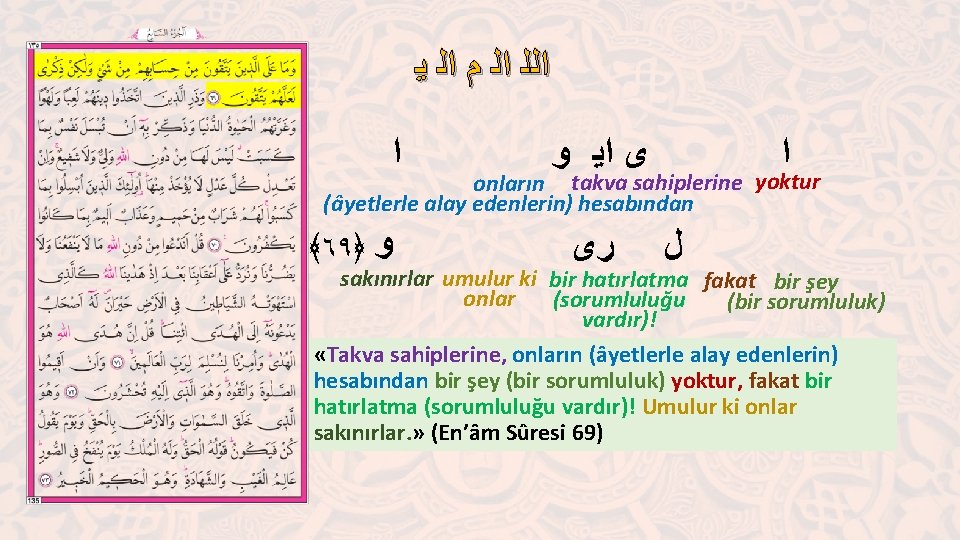 الجزء السابع
١٣٥
وَمَا عَلَى الَّذِينَ يَتَّقُونَ مِنْ حِسَابِهِمْ مِنْ شَيْءٍ وَلٰكِنْ ذِكْرٰى
لَعَلَّهُمْ يَتَّقُونَ ﴿٦٩﴾ وَذَرِ الَّذِينَ اتَّخَذُوا دِينَهُمْ لَعِبًا وَلَهْوًا
وَغَرَّتْهُمُ الْحَيٰوةُ الدُّنْيَا وَذَكِّرْ بِهِ أَنْ تُبْسَلَ نَفْسٌ بِمَا
كَسَبَتْ لَيْسَ لَهَا مِنْ دُونِ اللّٰهِ وَلِيٌّ وَلَا شَفِيعٌ وَإِنْ
تَعْدِلْ كُلَّ عَدْلٍ لَا يُؤْخَذْ مِنْهَا أُولٰئِكَ الَّذِينَ أُبْسِلُوا بِمَا
كَسَبُوا لَهُمْ شَرَابٌ مِنْ حَمِيمٍ وَعَذَابٌ أَلِيمٌ بِمَا كَانُوا
يَكْفُرُونَ ﴿٧٠﴾ قُلْ أَنَدْعُوا مِنْ دُونِ اللّٰهِ مَا لَا يَنْفَعُنَا وَلَا
يَضُرُّنَا وَنُرَدُّ عَلٰى أَعْقَابِنَا بَعْدَ إِذْ هَدٰينَا اللّٰهُ كَالَّذِي
اسْتَهْوَتْهُ الشَّيَاطِينُ فِي الْأَرْضِ حَيْرَانَ لَهُ أَصْحَابٌ
يَدْعُونَهُ إِلَى الْهُدَى ائْتِنَا قُلْ إِنَّ هُدَى اللّٰهِ هُوَ
الْهُدٰى وَأُمِرْنَا لِنُسْلِمَ لِرَبِّ الْعَالَمِينَ ﴿٧١﴾ وَأَنْ أَقِيمُوا
الصَّلٰوةَ وَاتَّقُوهُ وَهُوَ الَّذِي إِلَيْهِ تُحْشَرُونَ ﴿٧٢﴾ وَهُوَ
الَّذِي خَلَقَ السَّمٰوَاتِ وَالْأَرْضَ بِالْحَقِّ وَيَوْمَ يَقُولُ
كُنْ فَيَكُونُ قَوْلُهُ الْحَقُّ وَلَهُ الْمُلْكُ يَوْمَ يُنْفَخُ فِي الصُّورِ
عَالِمُ الْغَيْبِ وَالشَّهَادَةِ وَهُوَ الْحَكِيمُ الْخَبِيرُ ﴿٧٣﴾
135
اللـ الـ م الـ يـ
ا ى ايـ و ا
onların takva sahiplerine yoktur
(âyetlerle alay edenlerin) hesabından
ل رى و ﴿٦٩﴾
sakınırlar umulur ki bir hatırlatma fakat bir şey
onlar (sorumluluğu (bir sorumluluk)
vardır)!
«Takva sahiplerine, onların (âyetlerle alay edenlerin)
hesabından bir şey (bir sorumluluk) yoktur, fakat bir
hatırlatma (sorumluluğu vardır)! Umulur ki onlar
sakınırlar.» (En’âm Sûresi 69)